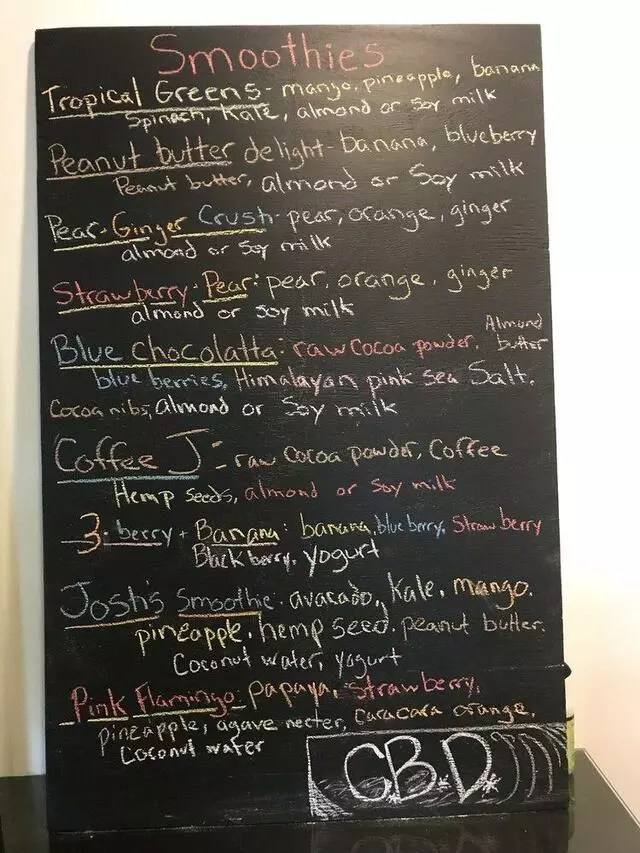 Smoothies
Tropical Greens- mango, pineapple, banana
Spinach, Kale, almond or Soy milk
Peanut butter delight- banana, blueberry
Peanut butter, almond or Soy milk
Pear-Ginger Crush- pear, orange, ginger
almond or Soy milk
Strawberry-Pear: pear, orange, ginger
almond or soy milk
Blue Chocolatta: raw Cocoa powder, Almond butter
blue berries, Himalayan pink sea Salt.
Cocoa nibs, almond or Soy milk
Coffee J - raw Cocoa powder, Coffee
Hemp Seeds, almond or Soy milk
3-berry + Banana: banana, blue berry, Strawberry
Black berry, yogurt
Josh's Smoothie: avacado, Kale, mango.
pineapple, hemp seed, peanut butter.
Coconut water, yogurt
Pink Flamingo: papaya, strawberry,
pineapple, agave necter, Caracara orange,
Coconut water
C.B.D.